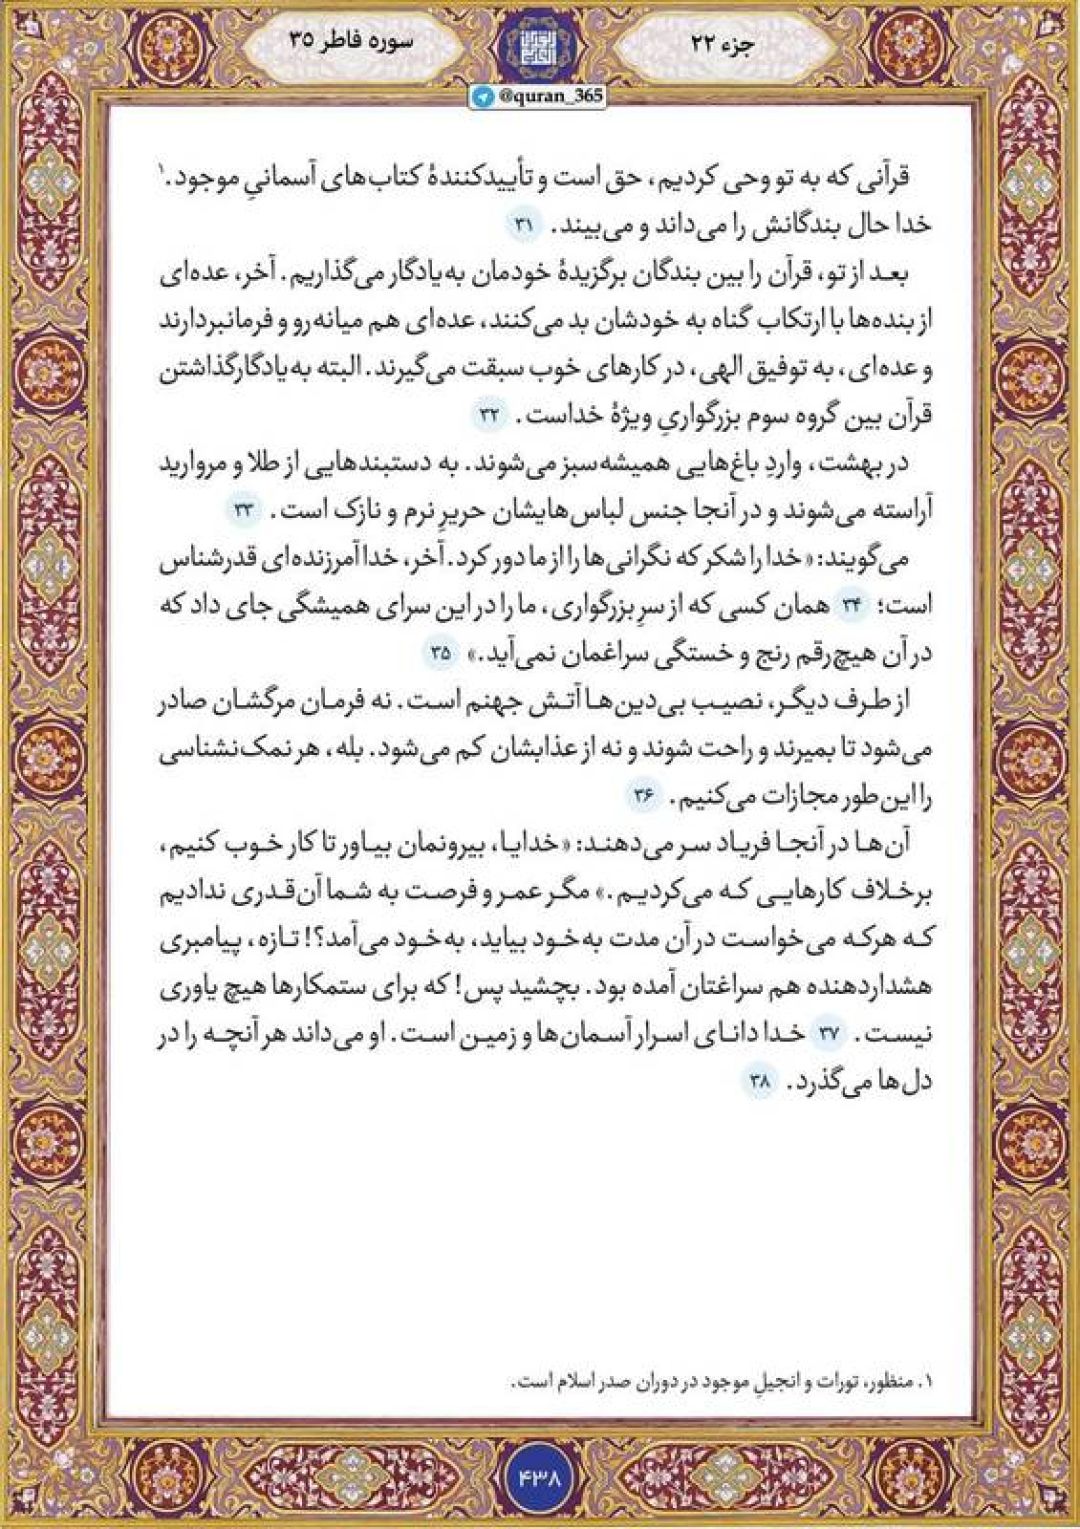 جزء ۲۲
سوره فاطر ۳۵
@quran_365
قرآنی که به تو وحی کردیم، حق است و تأییدکنندهٔ کتاب‌های آسمانیِ موجود.۱
خدا حال بندگانش را می‌داند و می‌بیند. ۳۱
بعد از تو، قرآن را بین بندگان برگزیدهٔ خودمان به‌یادگار می‌گذاریم. آخر، عده‌ای
از بنده‌ها با ارتکاب گناه به خودشان بد می‌کنند، عده‌ای هم میانه‌رو و فرمانبردارند
و عده‌ای، به توفیق الهی، در کارهای خوب سبقت می‌گیرند. البته به‌یادگارگذاشتن
قرآن بین گروه سوم بزرگواریِ ویژهٔ خداست. ۳۲
در بهشت، واردِ باغ‌هایی همیشه‌سبز می‌شوند. به دستبندهایی از طلا و مروارید
آراسته می‌شوند و در آنجا جنس لباس‌هایشان حریرِ نرم و نازک است. ۳۳
می‌گویند: «خدا را شکر که نگرانی‌ها را از ما دور کرد. آخر، خدا آمرزنده‌ای قدرشناس
است؛ ۳۴ همان کسی که از سرِ بزرگواری، ما را در این سرای همیشگی جای داد که
در آن هیچ‌رقم رنج و خستگی سراغمان نمی‌آید.» ۳۵
از طرف دیگر، نصیب بی‌دین‌ها آتش جهنم است. نه فرمان مرگشان صادر
می‌شود تا بمیرند و راحت شوند و نه از عذابشان کم می‌شود. بله، هر نمک‌نشناسی
را این‌طور مجازات می‌کنیم. ۳۶
آن‌ها در آنجا فریاد سر می‌دهند: «خدایا، بیرونمان بیاور تا کار خوب کنیم،
برخلاف کارهایی که می‌کردیم.» مگر عمر و فرصت به شما آن‌قدری ندادیم
که هرکه می‌خواست در آن مدت به‌خود بیاید، به‌خود می‌آمد؟! تازه، پیامبری
هشداردهنده هم سراغتان آمده بود. بچشید پس! که برای ستمکارها هیچ یاوری
نیست. ۳۷ خدا دانای اسرار آسمان‌ها و زمین است. او می‌داند هر آنچه را در
دل‌ها می‌گذرد. ۳۸
۱. منظور، تورات و انجیلِ موجود در دوران صدر اسلام است.
۴۳۸